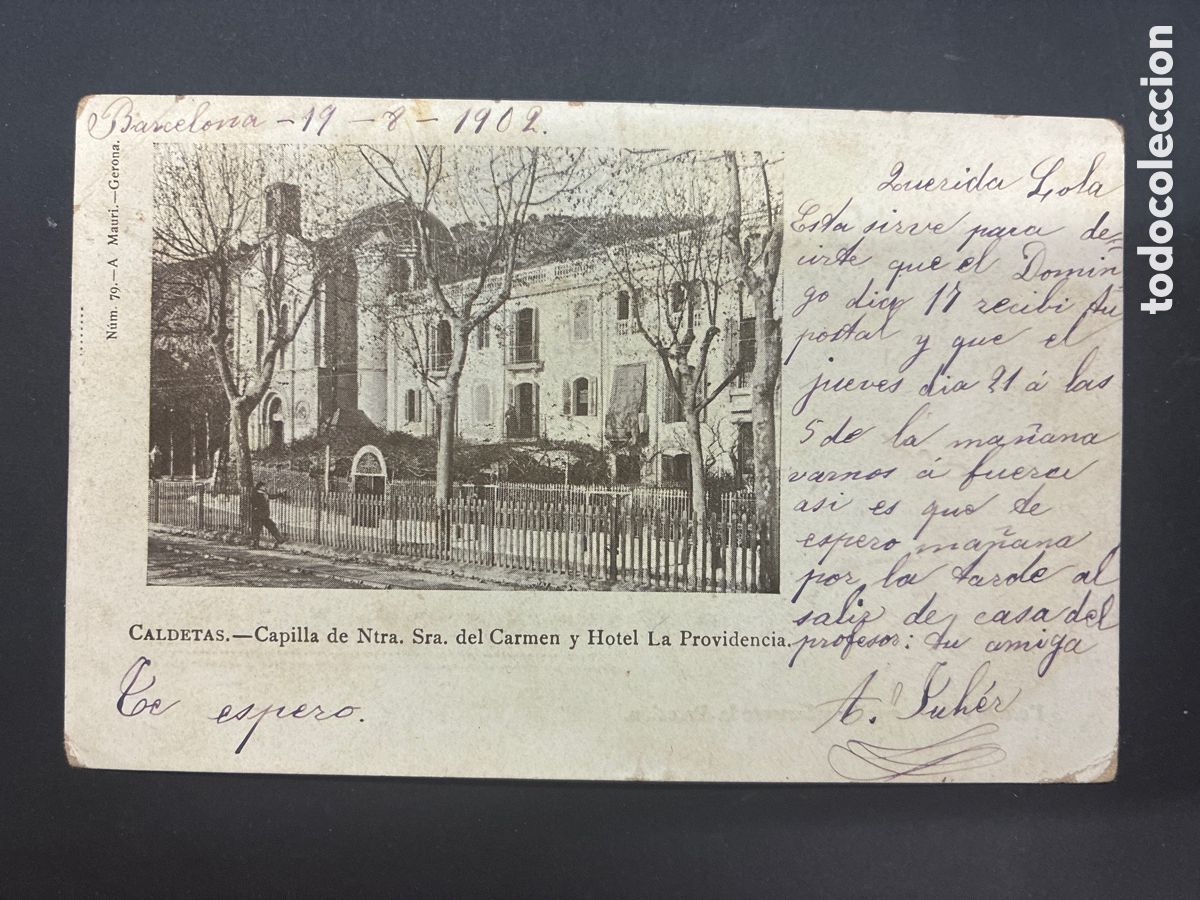 Barcelona - 19 - 8 - 1902.
Núm. 79.—A Mauri.—Gerona.
Querida Lola
Esta sirve para de-
cirte que el Domin
go dia 17 recibi tu
postal y que el
jueves dia 21 á las
5 de la mañana
vamos á fuera
asi es que te
espero mañana
por la tarde al
salir de casa del
profesor: tu amiga
A.
CALDETAS.—Capilla de Ntra. Sra. del Carmen y Hotel La Providencia.
Te espero.
todocoleccion